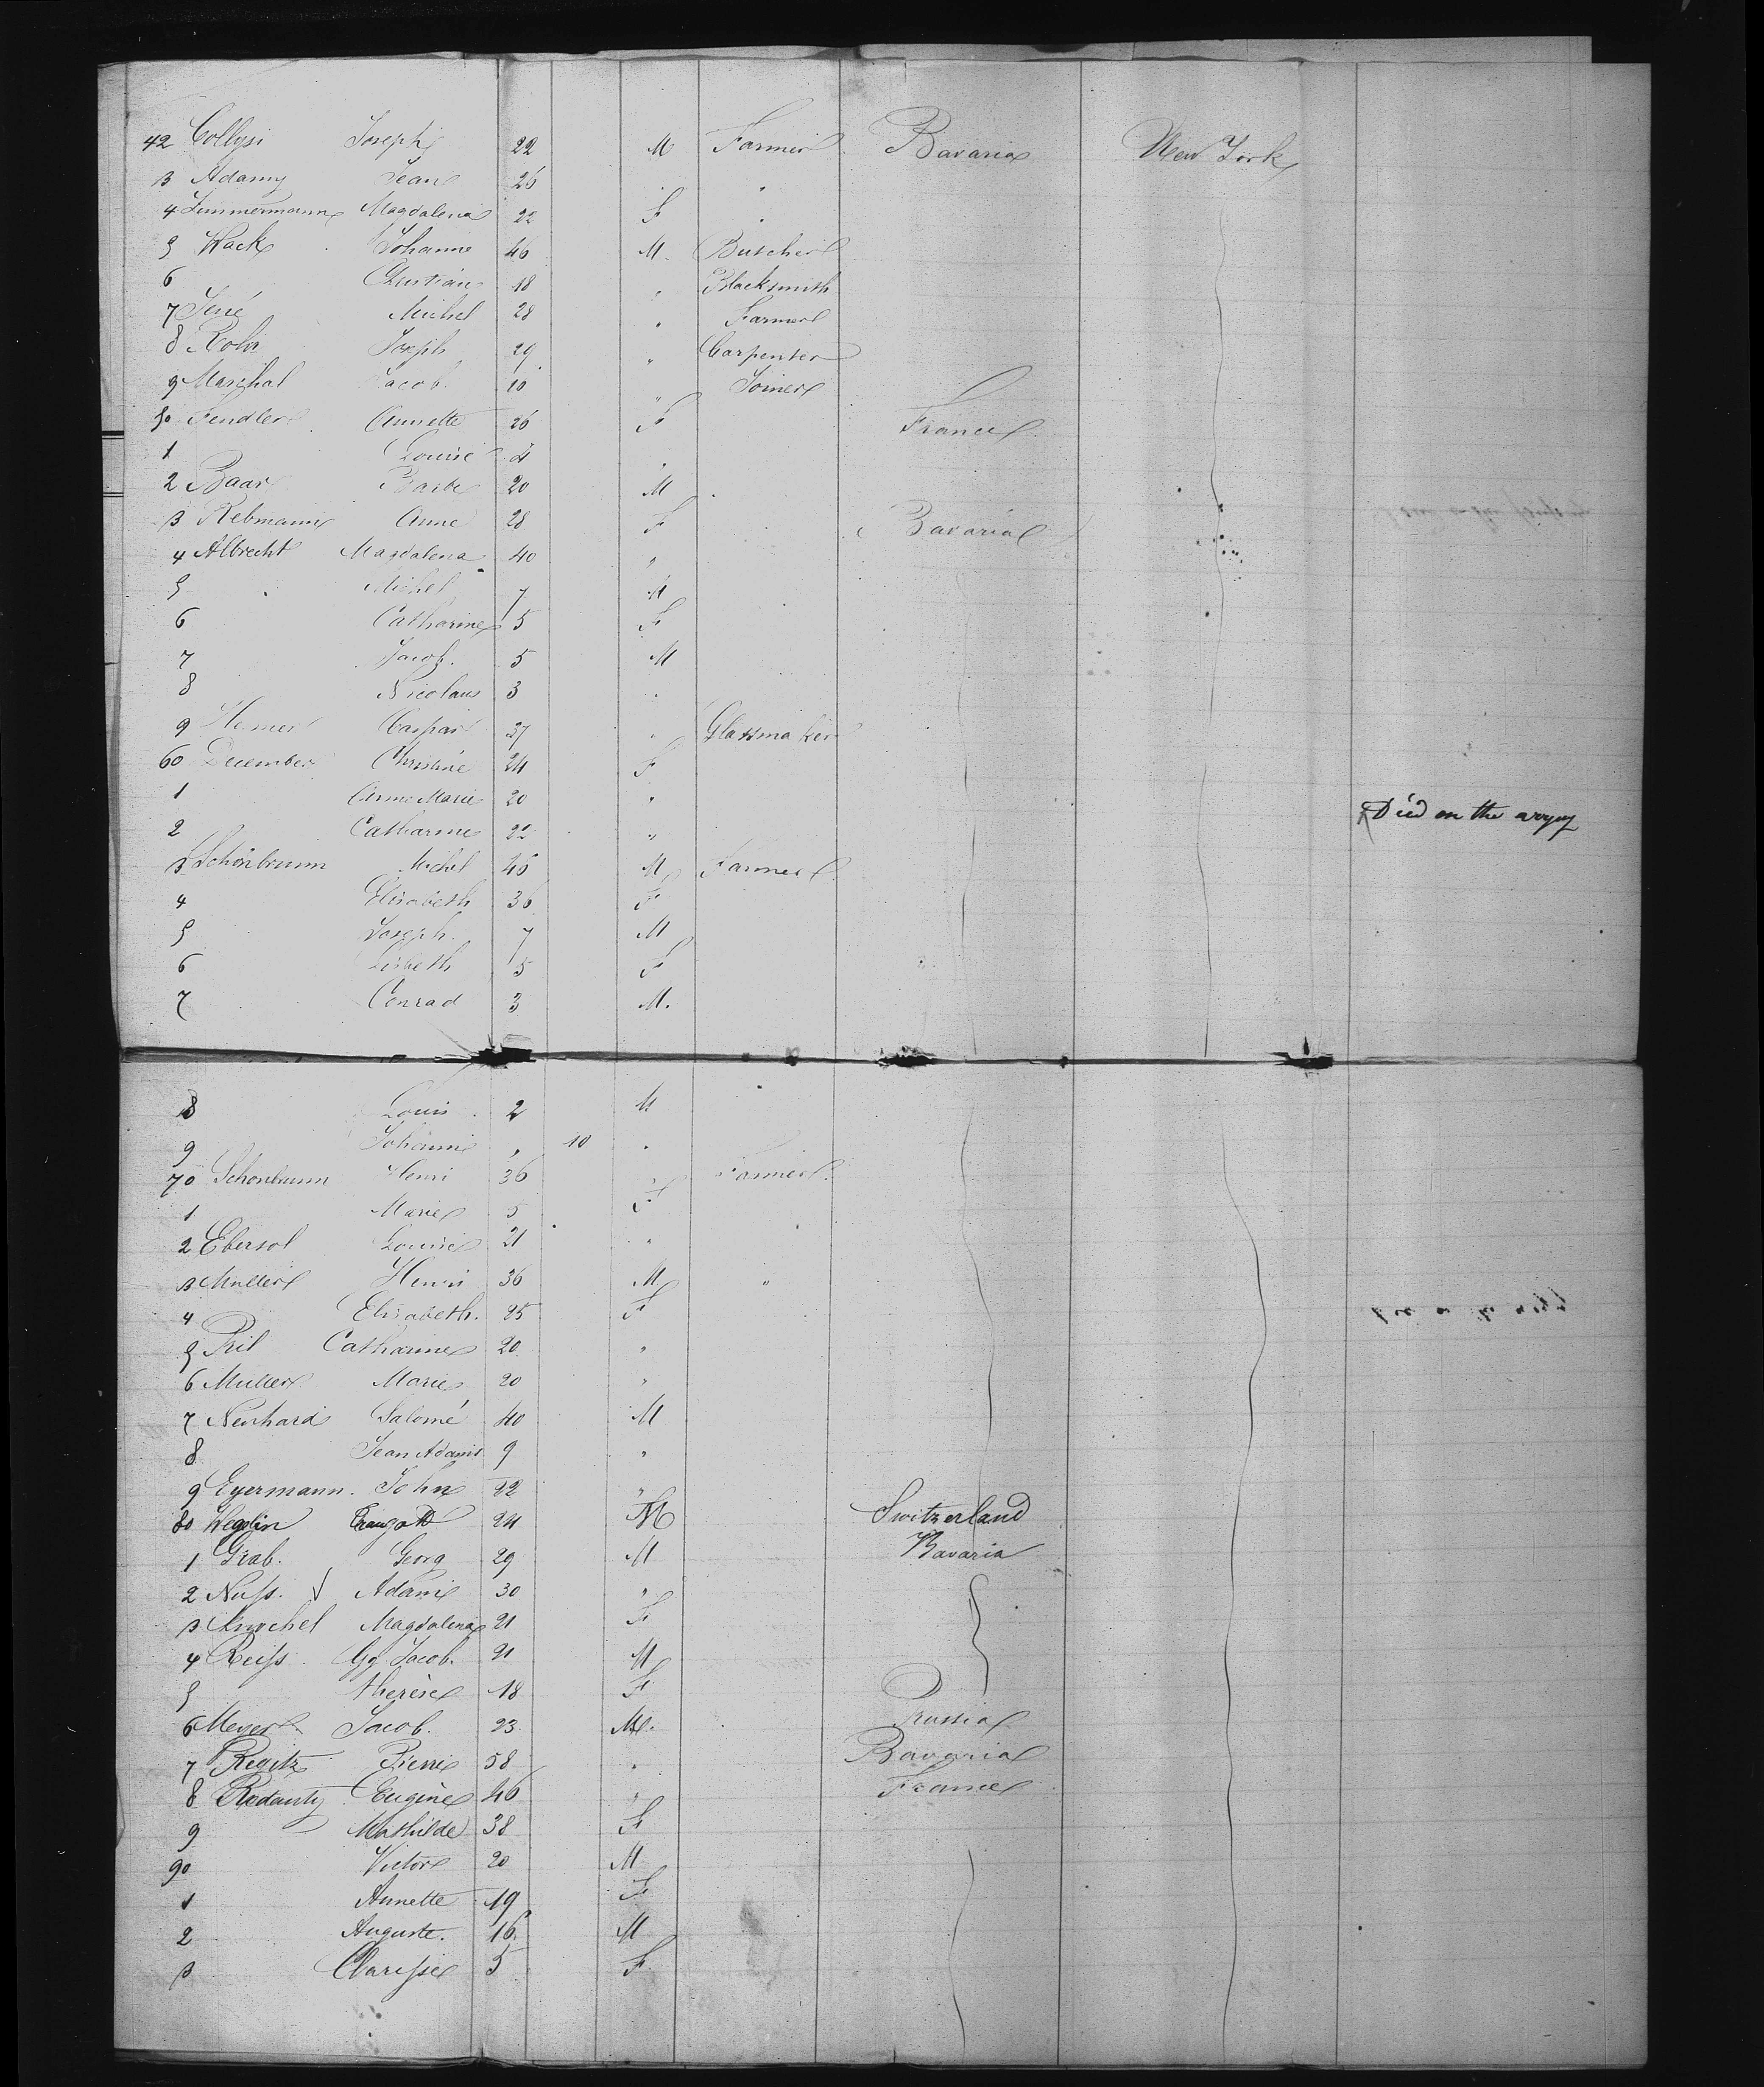 42 Collysi Joseph 22 M Farmer Bavaria New York
3 Adamy Jean 26 " "
4 Zimmermann Magdalena 22 F "
5 Wack Johanne 46 M Butcher
6 Christian 18 " Blacksmith
7 Jené Michel 28 " Farmer
8 Rohr Joseph 29 " Carpenter
9 Marschal Jacob 10 " Joiner
50 Fendler Annette 26 F France
1 Louise 4 "
2 Baar 20 M
3 Rebmann Anne 28 F Bavaria
4 Albrecht Magdalena 40 "
5 Michel 7 M
6 Catharine 5 F
7 Jacob. 5 M
8 Nicolaus 3 "
9 Caspar 37 " Glassmaker
60 December Christine 24 F
1 Anne Marie 20 "
2 Catharine 22 " Died on the
3 Schönbrunn Michel 45 M Farmer
4 Elisabeth 36 F
5 Joseph. 7 M
6 Lisbeth 5 F
7 Conrad 3 M.
8 Louis 2 M
9 Johanne " 10 "
70 Schonbrunn Henri 36 " Farmer
1 Marie 5 F
2 Ebersol Louise 21 "
3 Muller Henri 36 M "
4 Elisabeth. 25 F
5 Pril Catharine 20 "
6 Muller Marie 20 "
7 Neuhard Salomé 40 M
8 Jean Adam 9 "
9 Eyermann. John 22 "
80 Wegelin Traugott 24 M Switzerland
1 Grab. Georg 29 M Bavaria
2 Nuss. √ Adam 30 "
3 Knochel Magdalena 21 F
4 Reiss Jacob. 21 M
5 Therèse 18 F
6 Meyer Jacob. 23 M. Prussia
7 Regitz Pierre 58 " Bavaria
8 Eugène 46 " France
9 Mathilde 38 F
90 Victor 20 M
1 Annette 19 F
2 Auguste. 16 M
3 Clarisse 5 F